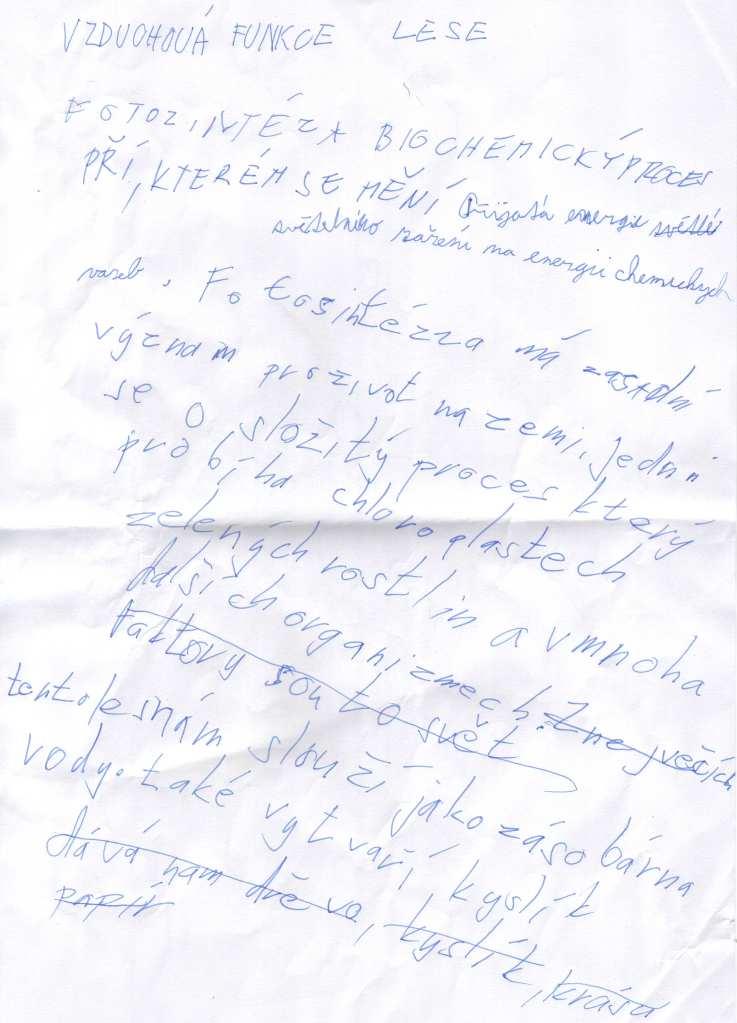 VZDUCHOVÁ FUNKCE LESE
FOTOZINTÉZA BIOCHEMICKÝ PROCES
PŘÍ, KTERÉM SE MĚNÍ přijatá energie světlé
světelního záření na energii chemických
vazeb. Fotosintézza má zásadní
význam proživot na zemi. jední
se O složitý proces který
probíha chloroplastech
zelených rostlin a vmnoha
dalších organizmech. Z nejvečích
faktory sou to svět
tentolesnám slouží jako zásobárna
vody. také vytváří kyslík
dává nam dřevo, kyslík, krásu
PAPIR